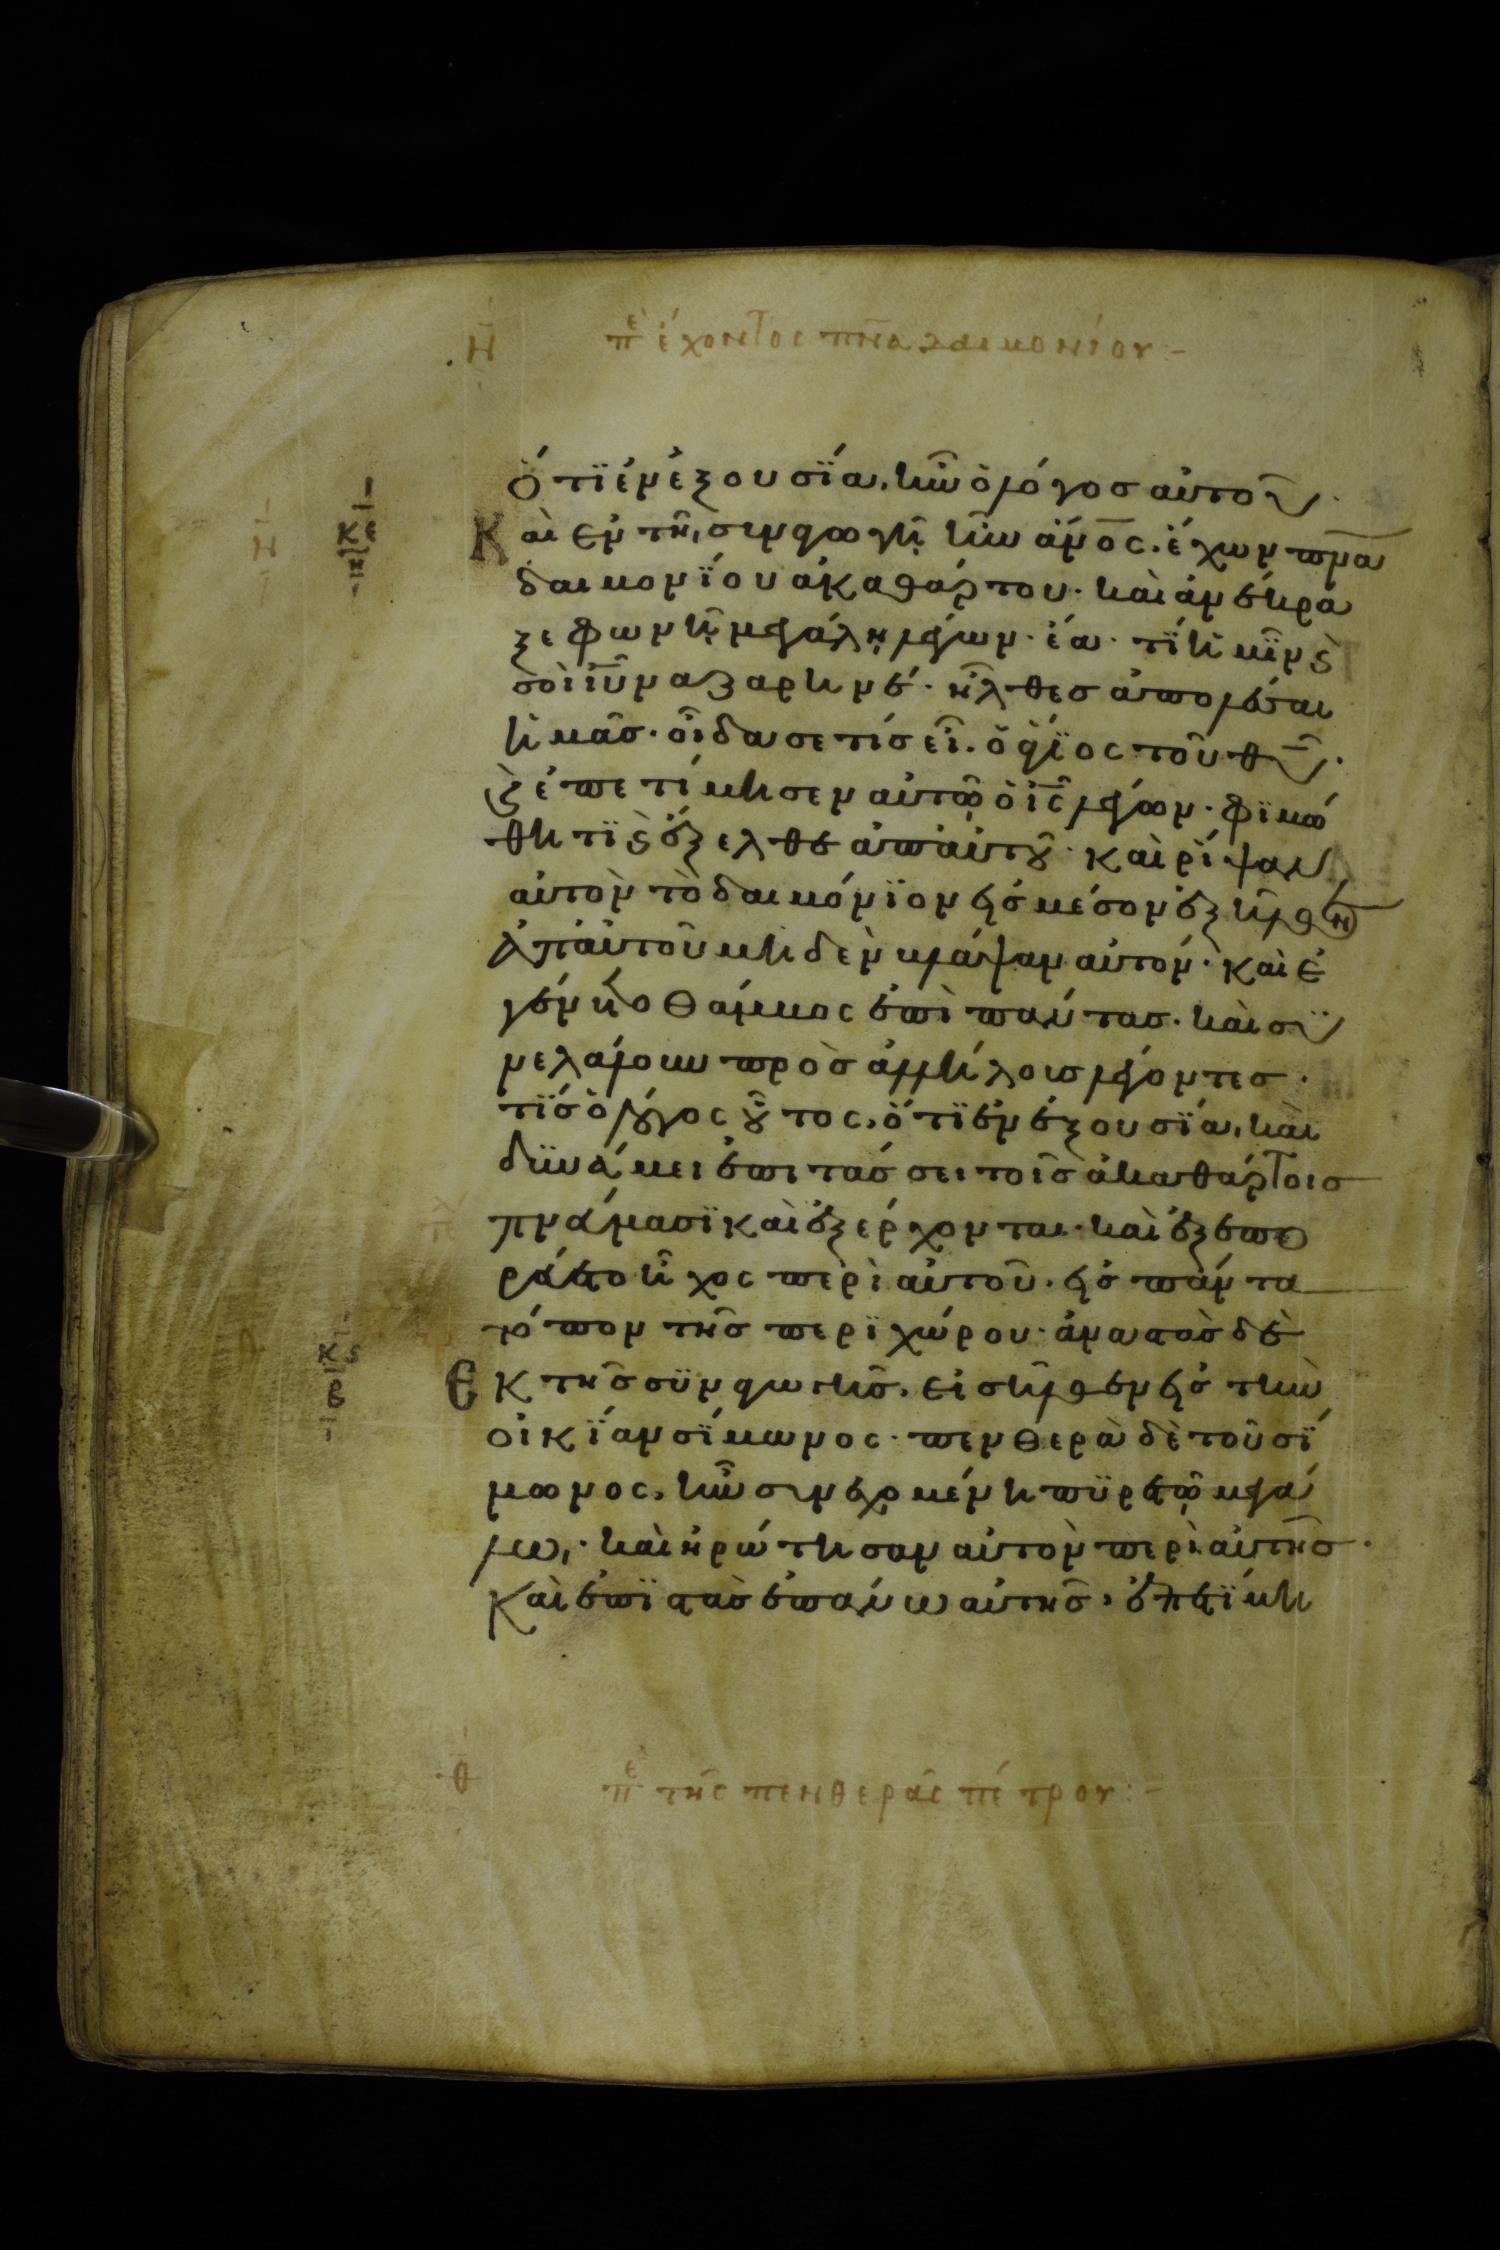 Η
πε ἔχοντος πνα δαιμονίου
ὅτϊ ἐν ἐξουσϊα, ἦν ὁ λόγοσ αὐτοῦ.
Καὶ ἐν τῆι συναγωγῆ ἦν ἄνος. ἔχων πνα
δαιμονϊου ἀκαθάρτου. καὶ ἀνέκρα
ξε φωνῆ μεγάλη λέγων. ἔα. τί ἡμῖν ϗ
σοὶ ιυ ναζαρηνέ. ἦλθεσ ἀπολέσαι
ἡμᾶσ. οἶδα σε τίσ εἶ. ὁ ἅγϊος τοῦ θυ.
ϗ ἐπετίμησεν αὐτῶ ὁ ις λέγων. φϊμώ
θητϊ ϗ ἔξελθε ἀπ αὐτοῦ. καὶ ρίψαν
αὐτὸν τὸ δαιμόνϊον εἰσ μέσον ἐξῆλθεν
ἀπ αὐτοῦ μηδὲν βλάψαν αὐτόν. καὶ ἐ
γένετο θάμβος ἐπὶ πάντασ. καὶ συ
νελάλουν πρὸσ ἀλλήλουσ λέγοντεσ.
τίσ ὁ λόγος οὗτος, ὅτϊ ἐν ἐξουσϊα, καὶ
δϋνάμει ἐπιτάσσει τοῖσ ἀκαθάρτοισ
πνάμασϊ καὶ ἐξέρχονται. καὶ ἐξεπο
ρεύετο ἦχος περὶ αὐτοῦ. εἰσ πάντα
τόπον τῆσ περϊχώρου. ἀναστὰσ δὲ
Εκ τῆσ σϋναγωγῆσ. εἰσῆλθεν εἰσ τὴν
οἰκϊαν σϊμωνος. πενθερὰ δὲ τοῦ σϊ
μωνος, ἦν συνεχομένη πϋρετῶ μεγά
λω. καὶ ἠρώτησαν αὐτὸν περὶ αὐτῆσ.
Καὶ ἐπϊστὰσ ἐπάνω αὐτῆσ, ἐπετϊμη
κε
η
Η
κς
β
θ
πε τῆς πενθερᾶς πέτρου: